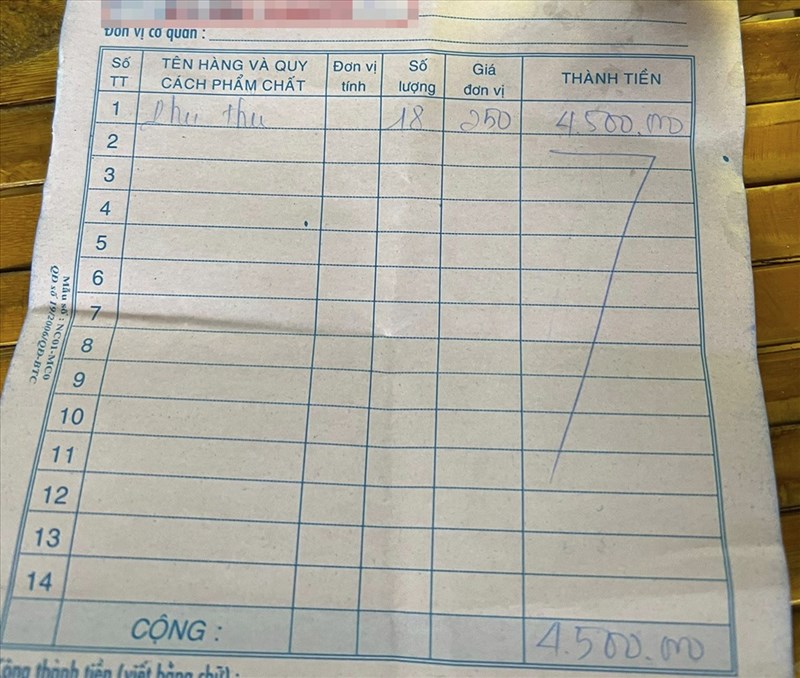 Đơn vị cơ quan :
Số TT TÊN HÀNG VÀ QUY CÁCH PHẨM CHẤT Đơn vị tính Số lượng Giá đơn vị THÀNH TIỀN
1 Phu thu 18 250 4.500.000
2
3
4
5
6
7
8
9
10
11
12
13
14
CỘNG : 4.500.000
Cộng thành tiền (viết bằng chữ) :
Mẫu số : NC01-MC0
QĐ số 19/2006/QĐ-BTC